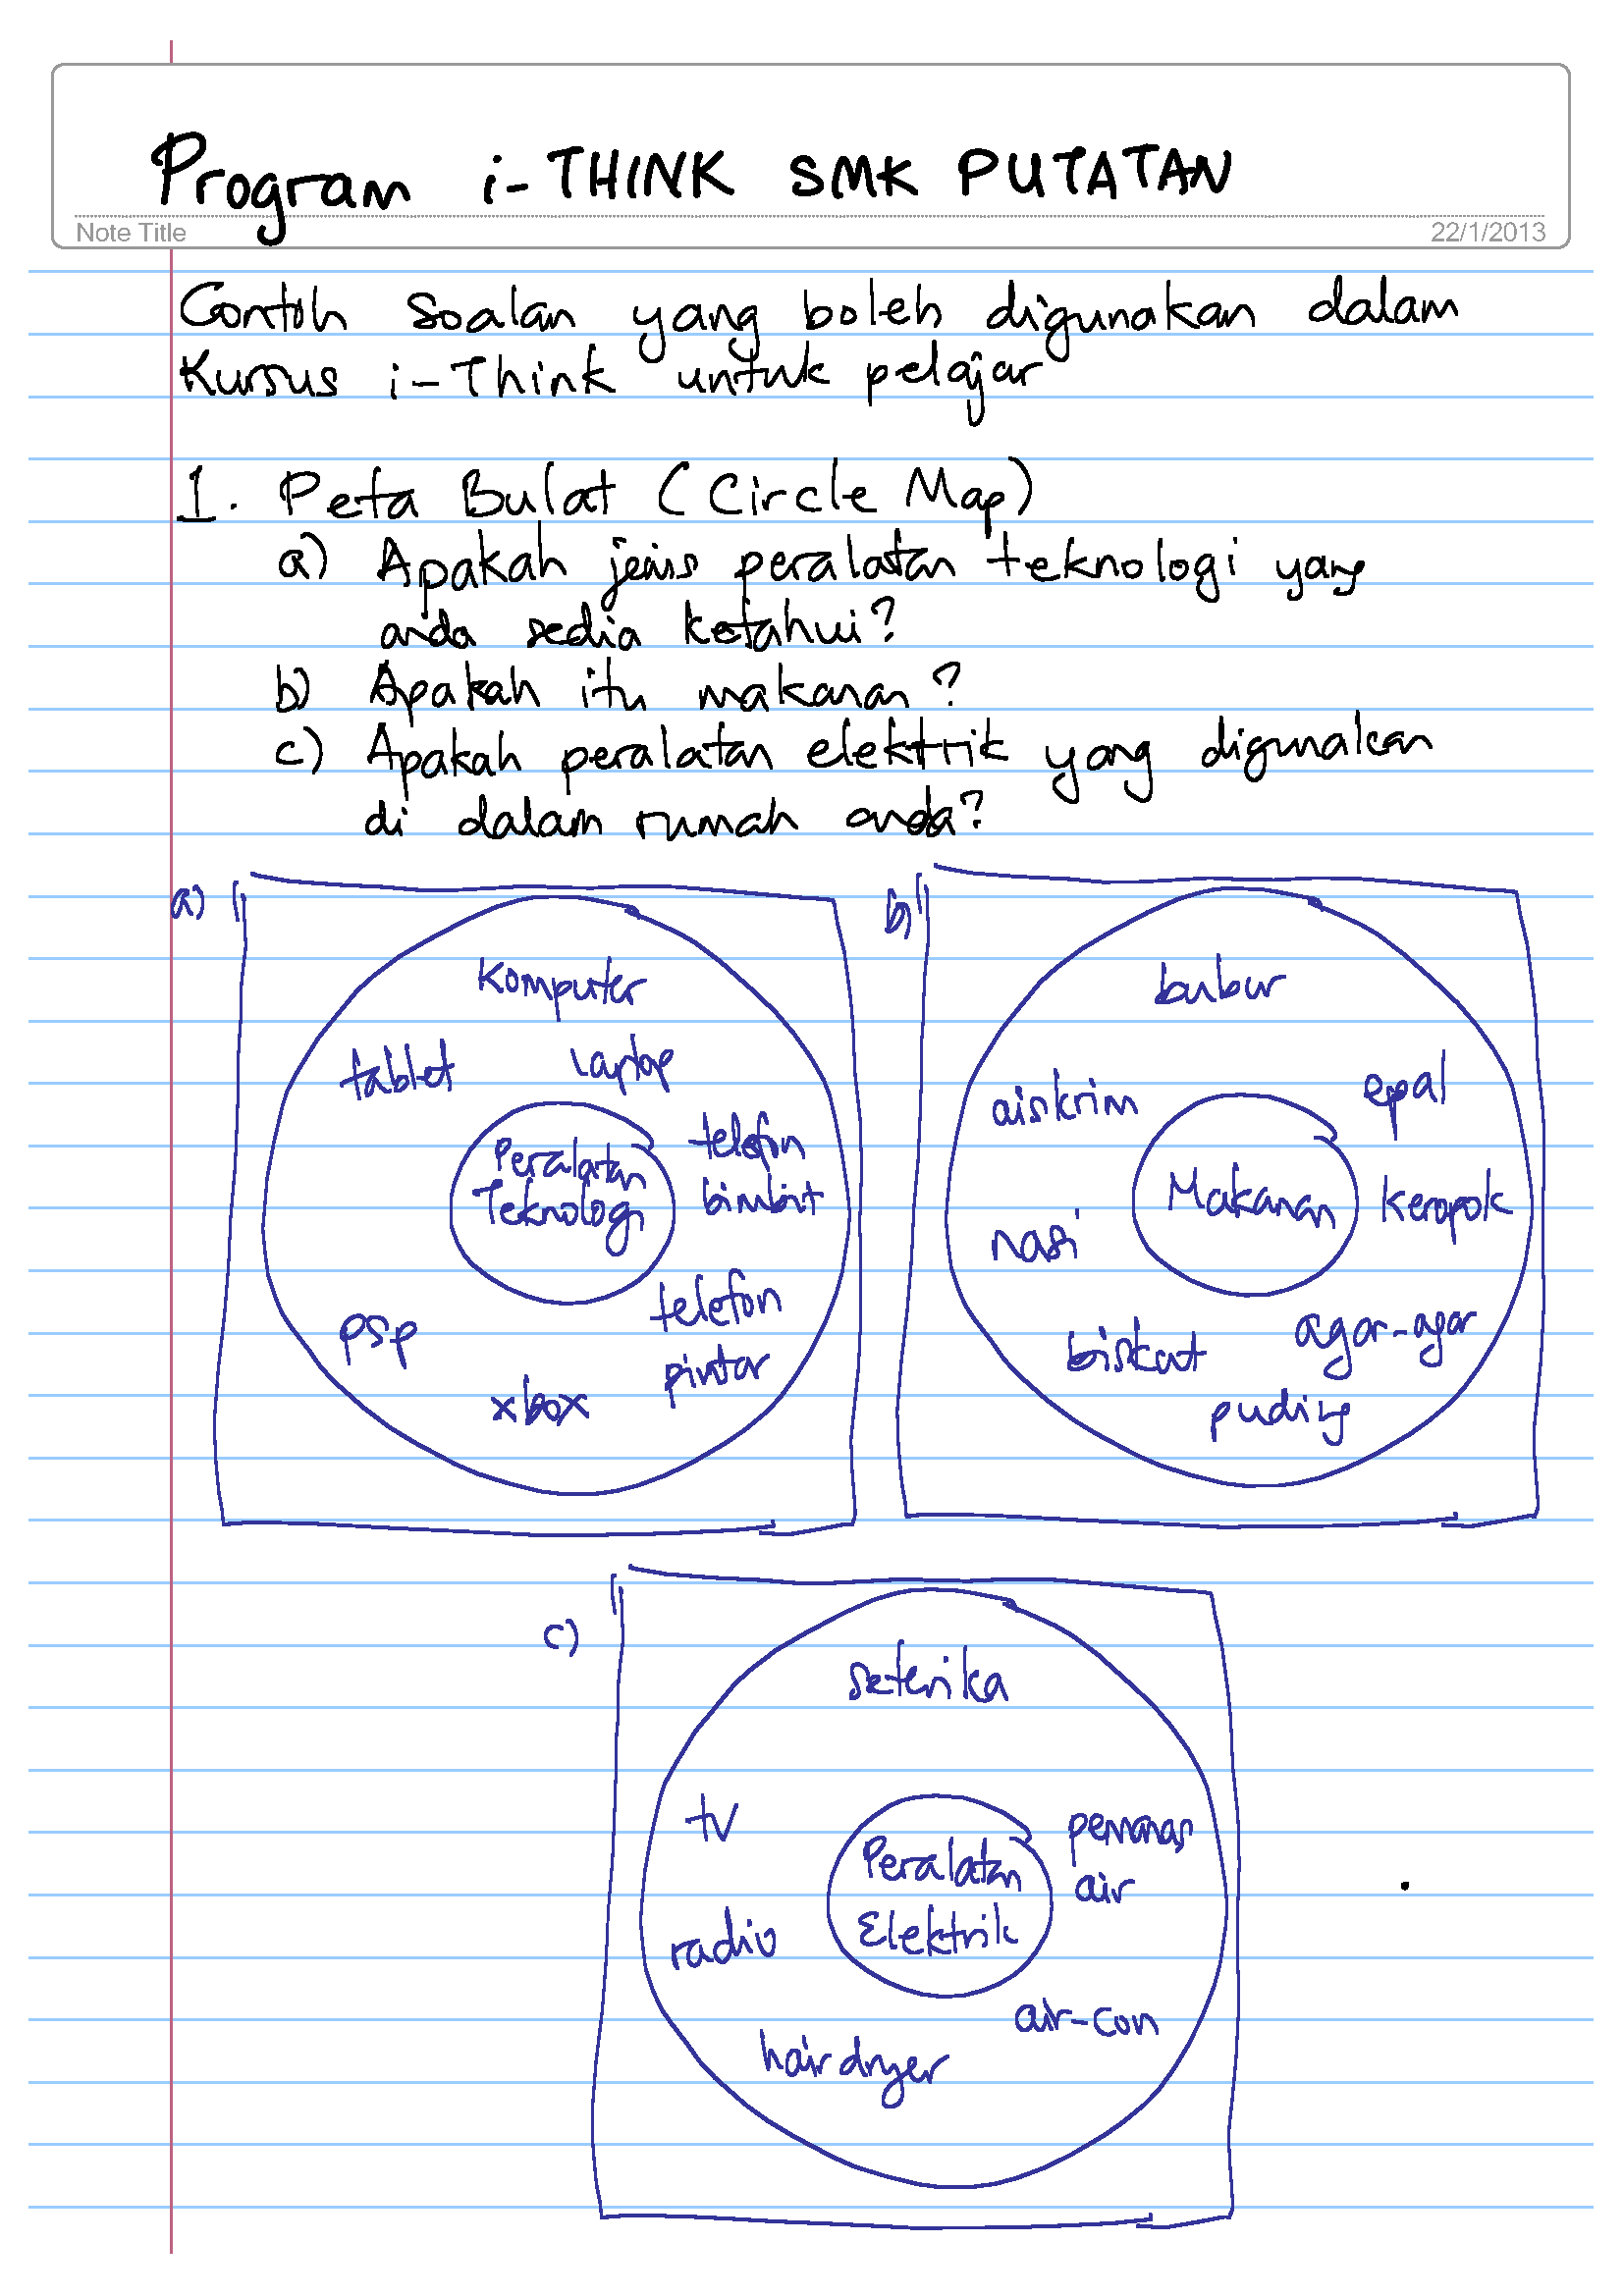 Program i-THINK SMK PUTATAN
Note Title
22/1/2013
Contoh soalan yang boleh digunakan dalam
Kursus i-Think untuk pelajar
1. Peta Bulat (Circle Map)
a) Apakah jenis peralatan teknologi yang
anda sedia ketahui?
b) Apakah itu makanan?
c) Apakah peralatan elektrik yang digunakan
di dalam rumah anda?
a)
Komputer
tablet
Laptop
telefon
bimbit
Peralatan
Teknologi
telefon
pintar
psp
xbox
b)
bubur
epal
aiskrim
Makanan
Keropok
nasi
agar-agar
biskut
puding
c)
seterika
tv
pemanas
air
Peralatan
Elektrik
radio
air-con
hair dryer